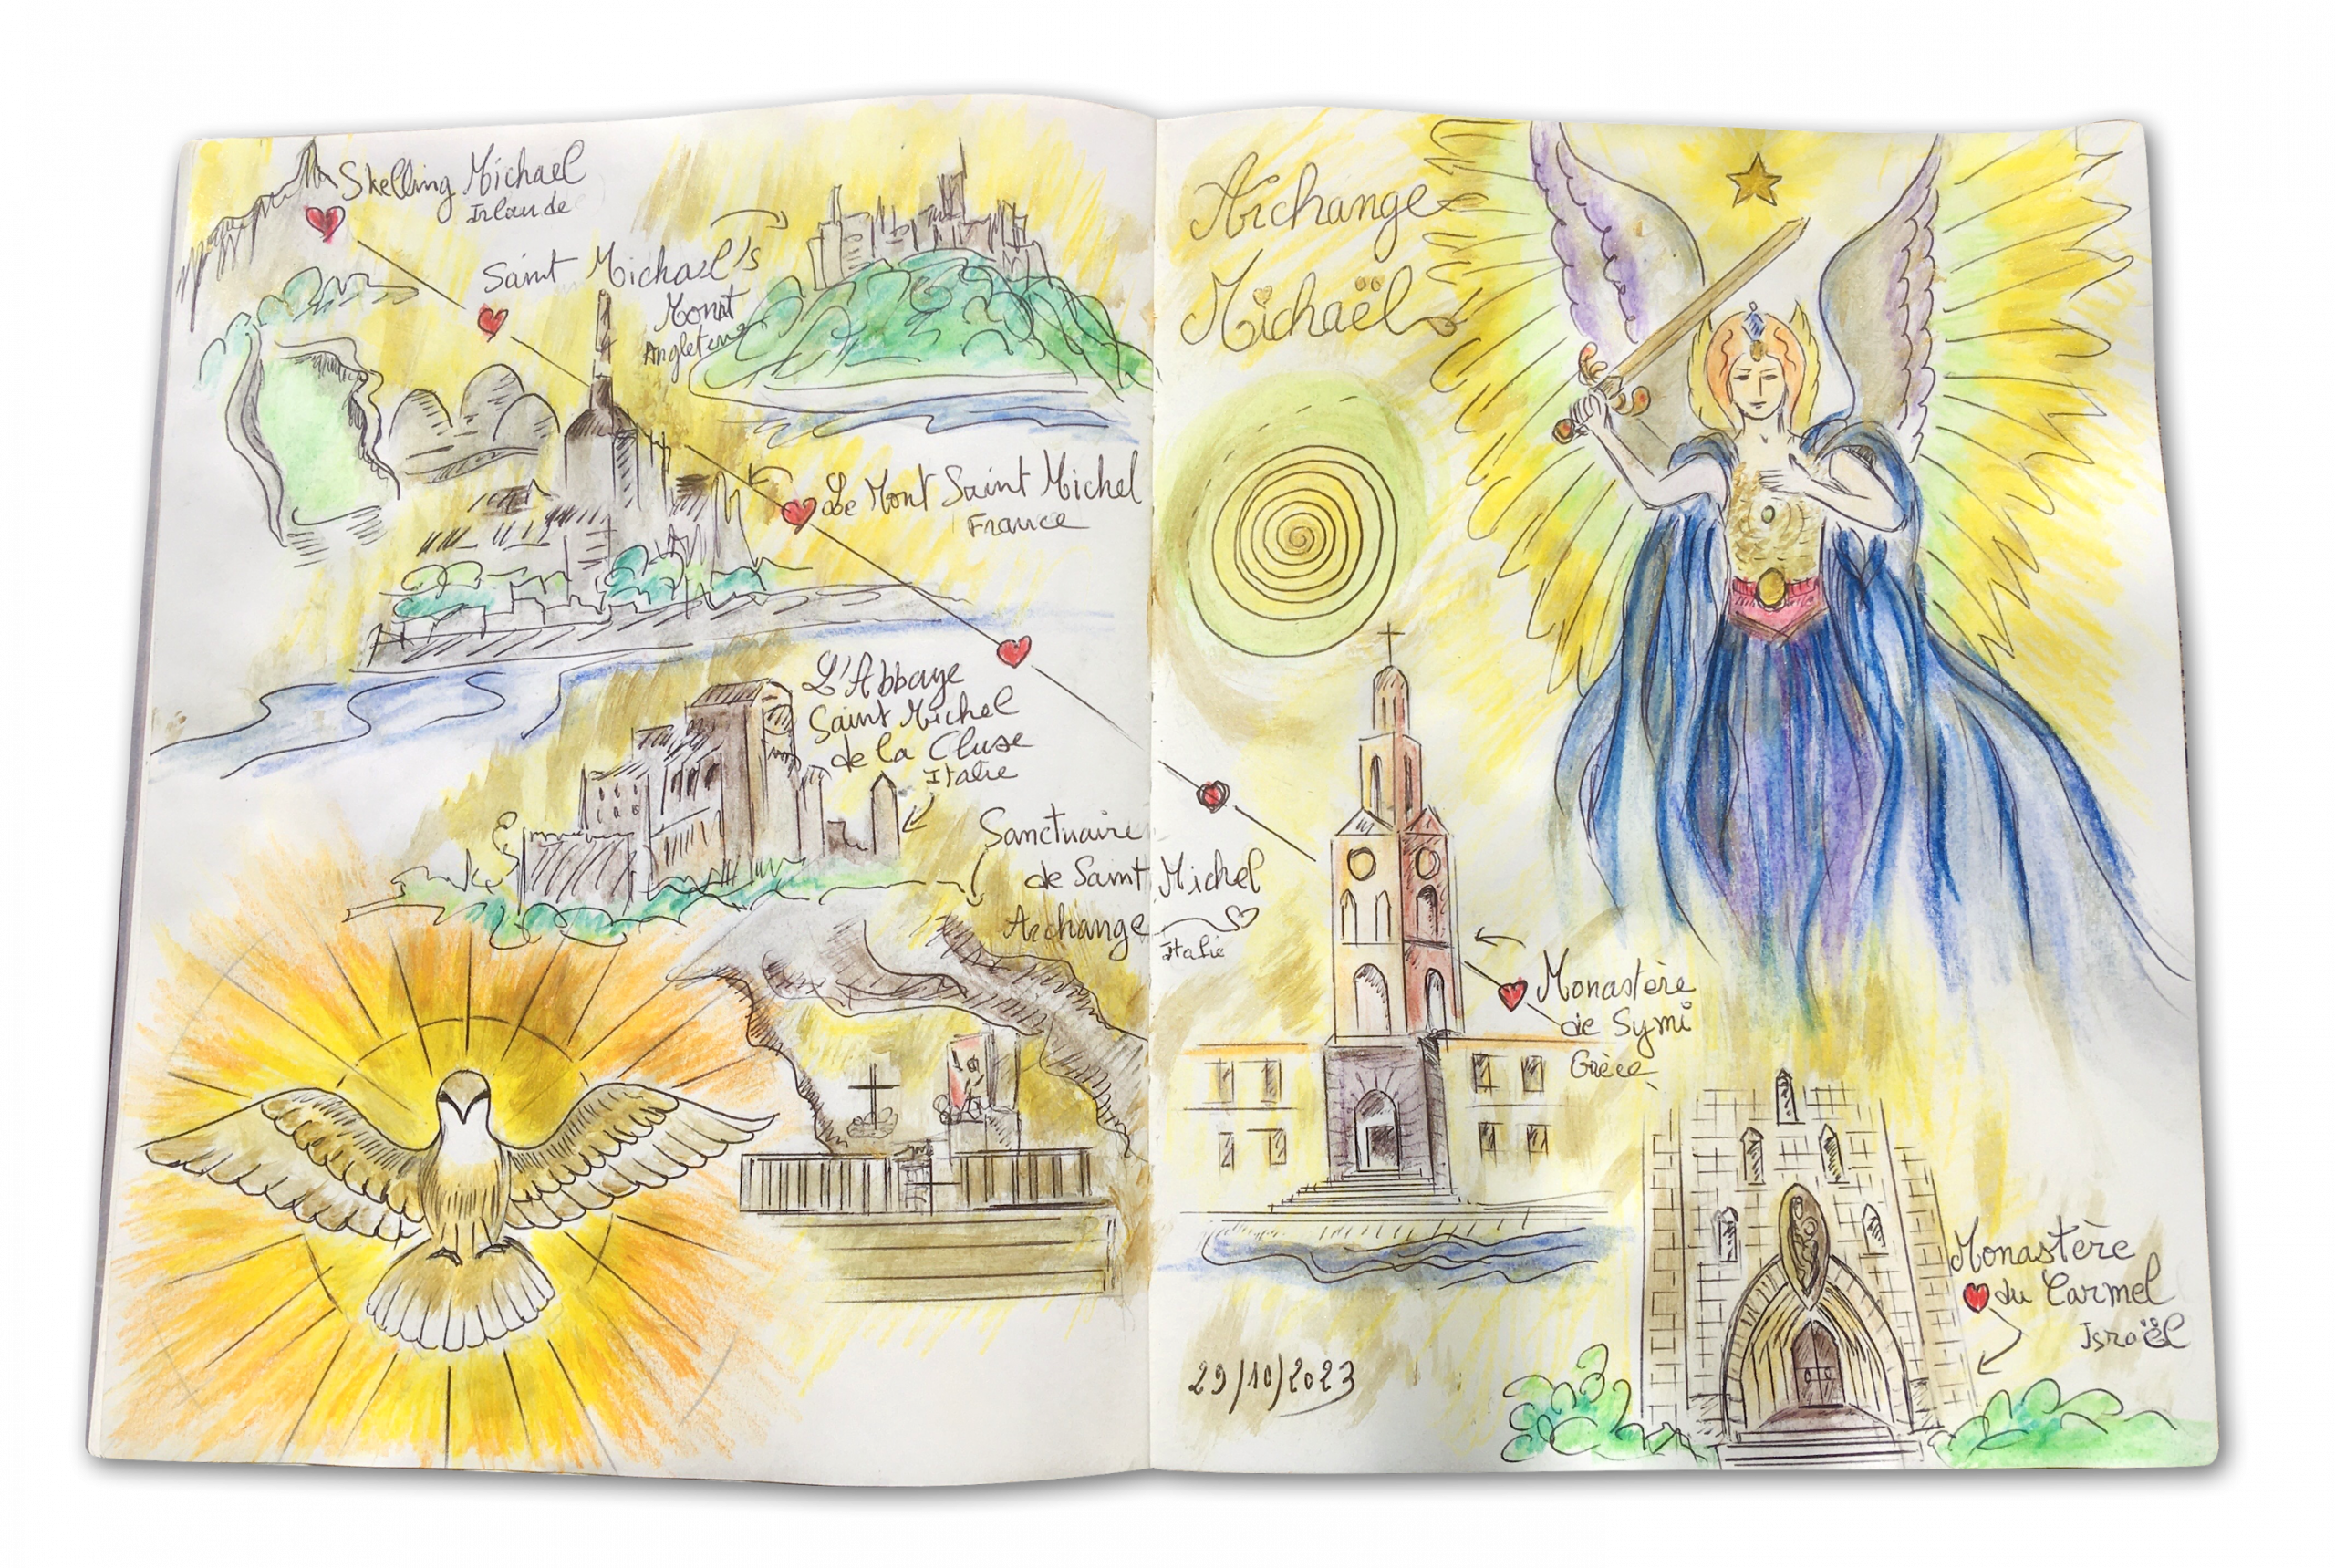 Skelling Michael
Irlande
Saint Michael's
Mont
Angleterre
Le Mont Saint Michel
France
L'Abbaye
Saint Michel
de la Cluse
Italie
Sanctuaire
de Saint Michel
Archange
Italie
Archange
Michaël
Monastère
de Symi
Grèce
Monastère
du Carmel
Israël
29/10/2023